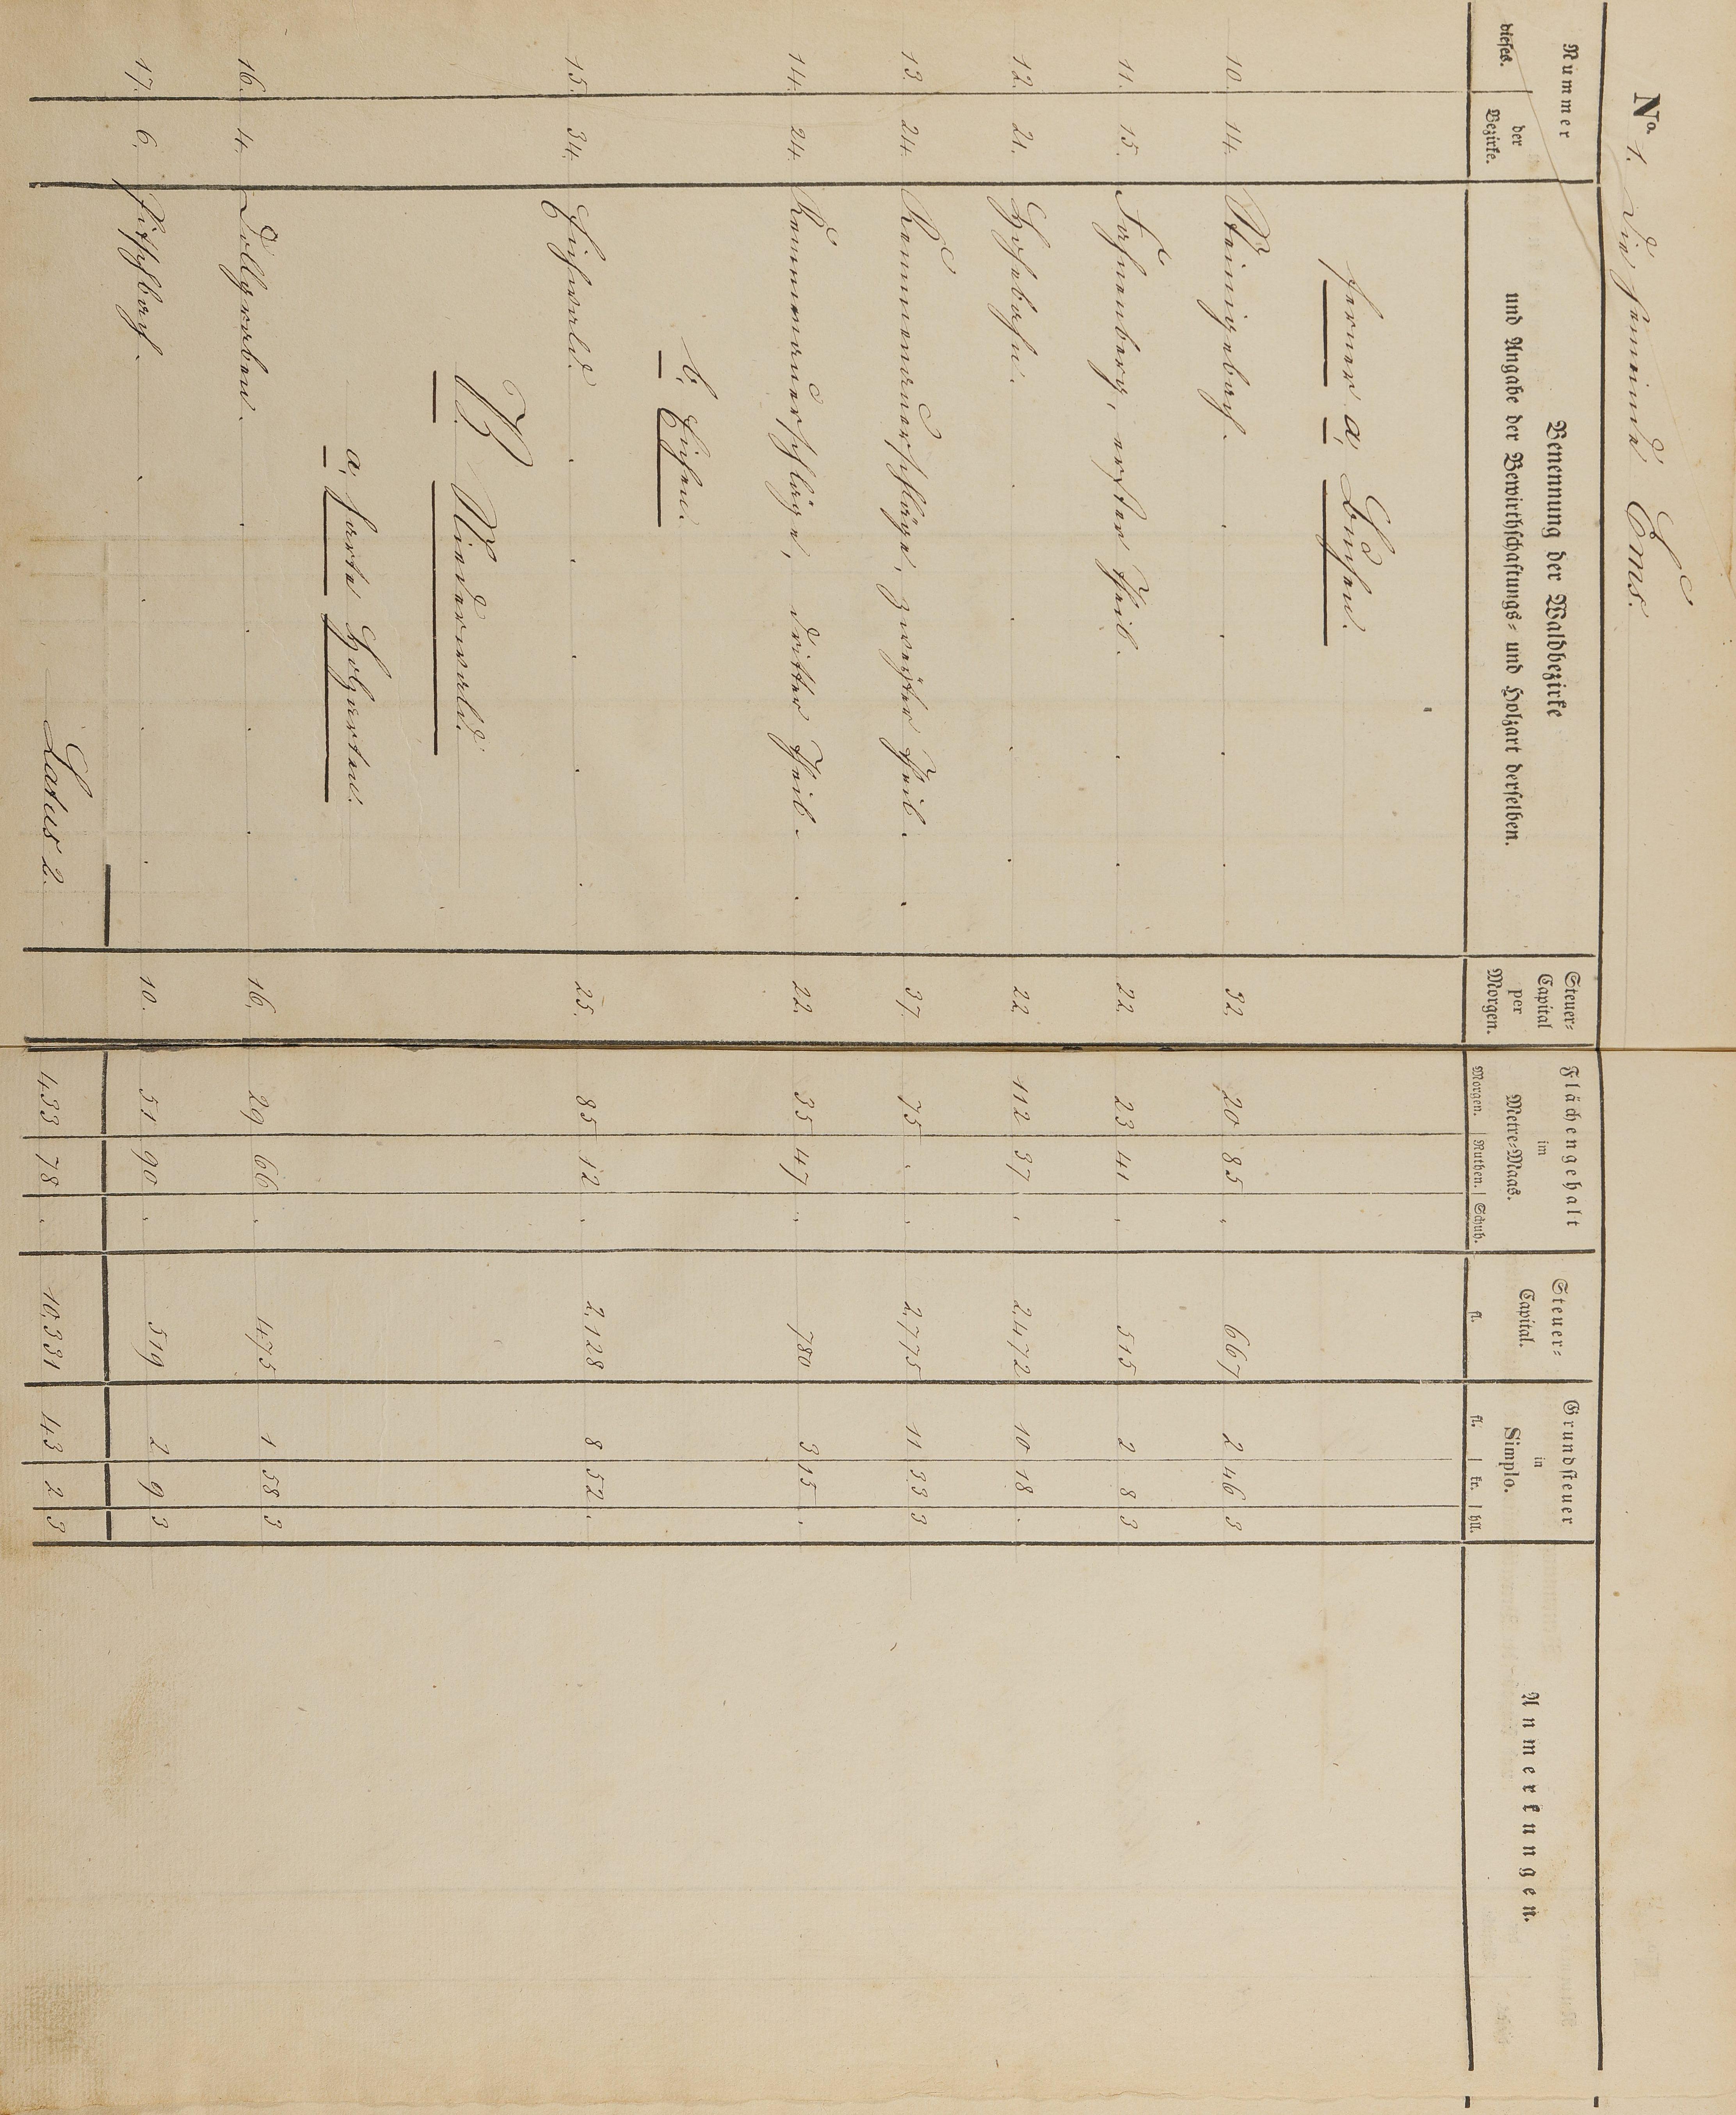 No. 1. Die Gemeinde Ems.
Nummer
dieses.
der Bezirke.
Benennung der Waldbezirke
und Angabe der Bewirthschaftungs- und Holzart derselben.
Steuer-Capital per Morgen.
Flächengehalt im Metre-Maas.
Morgen. | Ruthen. | Schuh.
Steuer-Capital.
fl.
Grundsteuer in Simplo.
fl. | kr. | hll.
Anmerkungen.
ferner a, Buchen.
10. 14. 32. 20 85 . 667 2 46 3
11. 15. erster Theil. 22. 23 41 . 515 2 8 3
12. 21. 22. 112 37 . 2,472 10 18 .
13. 24. zweyter Theil. 37. 75 . . 2,775 11 33 3
14. 24. dritter Theil. 22. 35 47 . 780 3 15 .
b, Eichen.
15. 34. Eichwald. 25. 85 12 . 2,128 8 52 .
B. Niederwald.
a, harte Holzarten.
16. 4. 16. 29 66 . 475 1 58 3
17. 6. 10. 51 90 . 519 2 9 3
Latus 2. 433 78 . 10,331 43 2 3